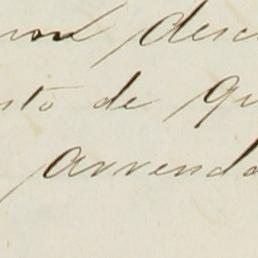 desc
sto de qu
arrenda